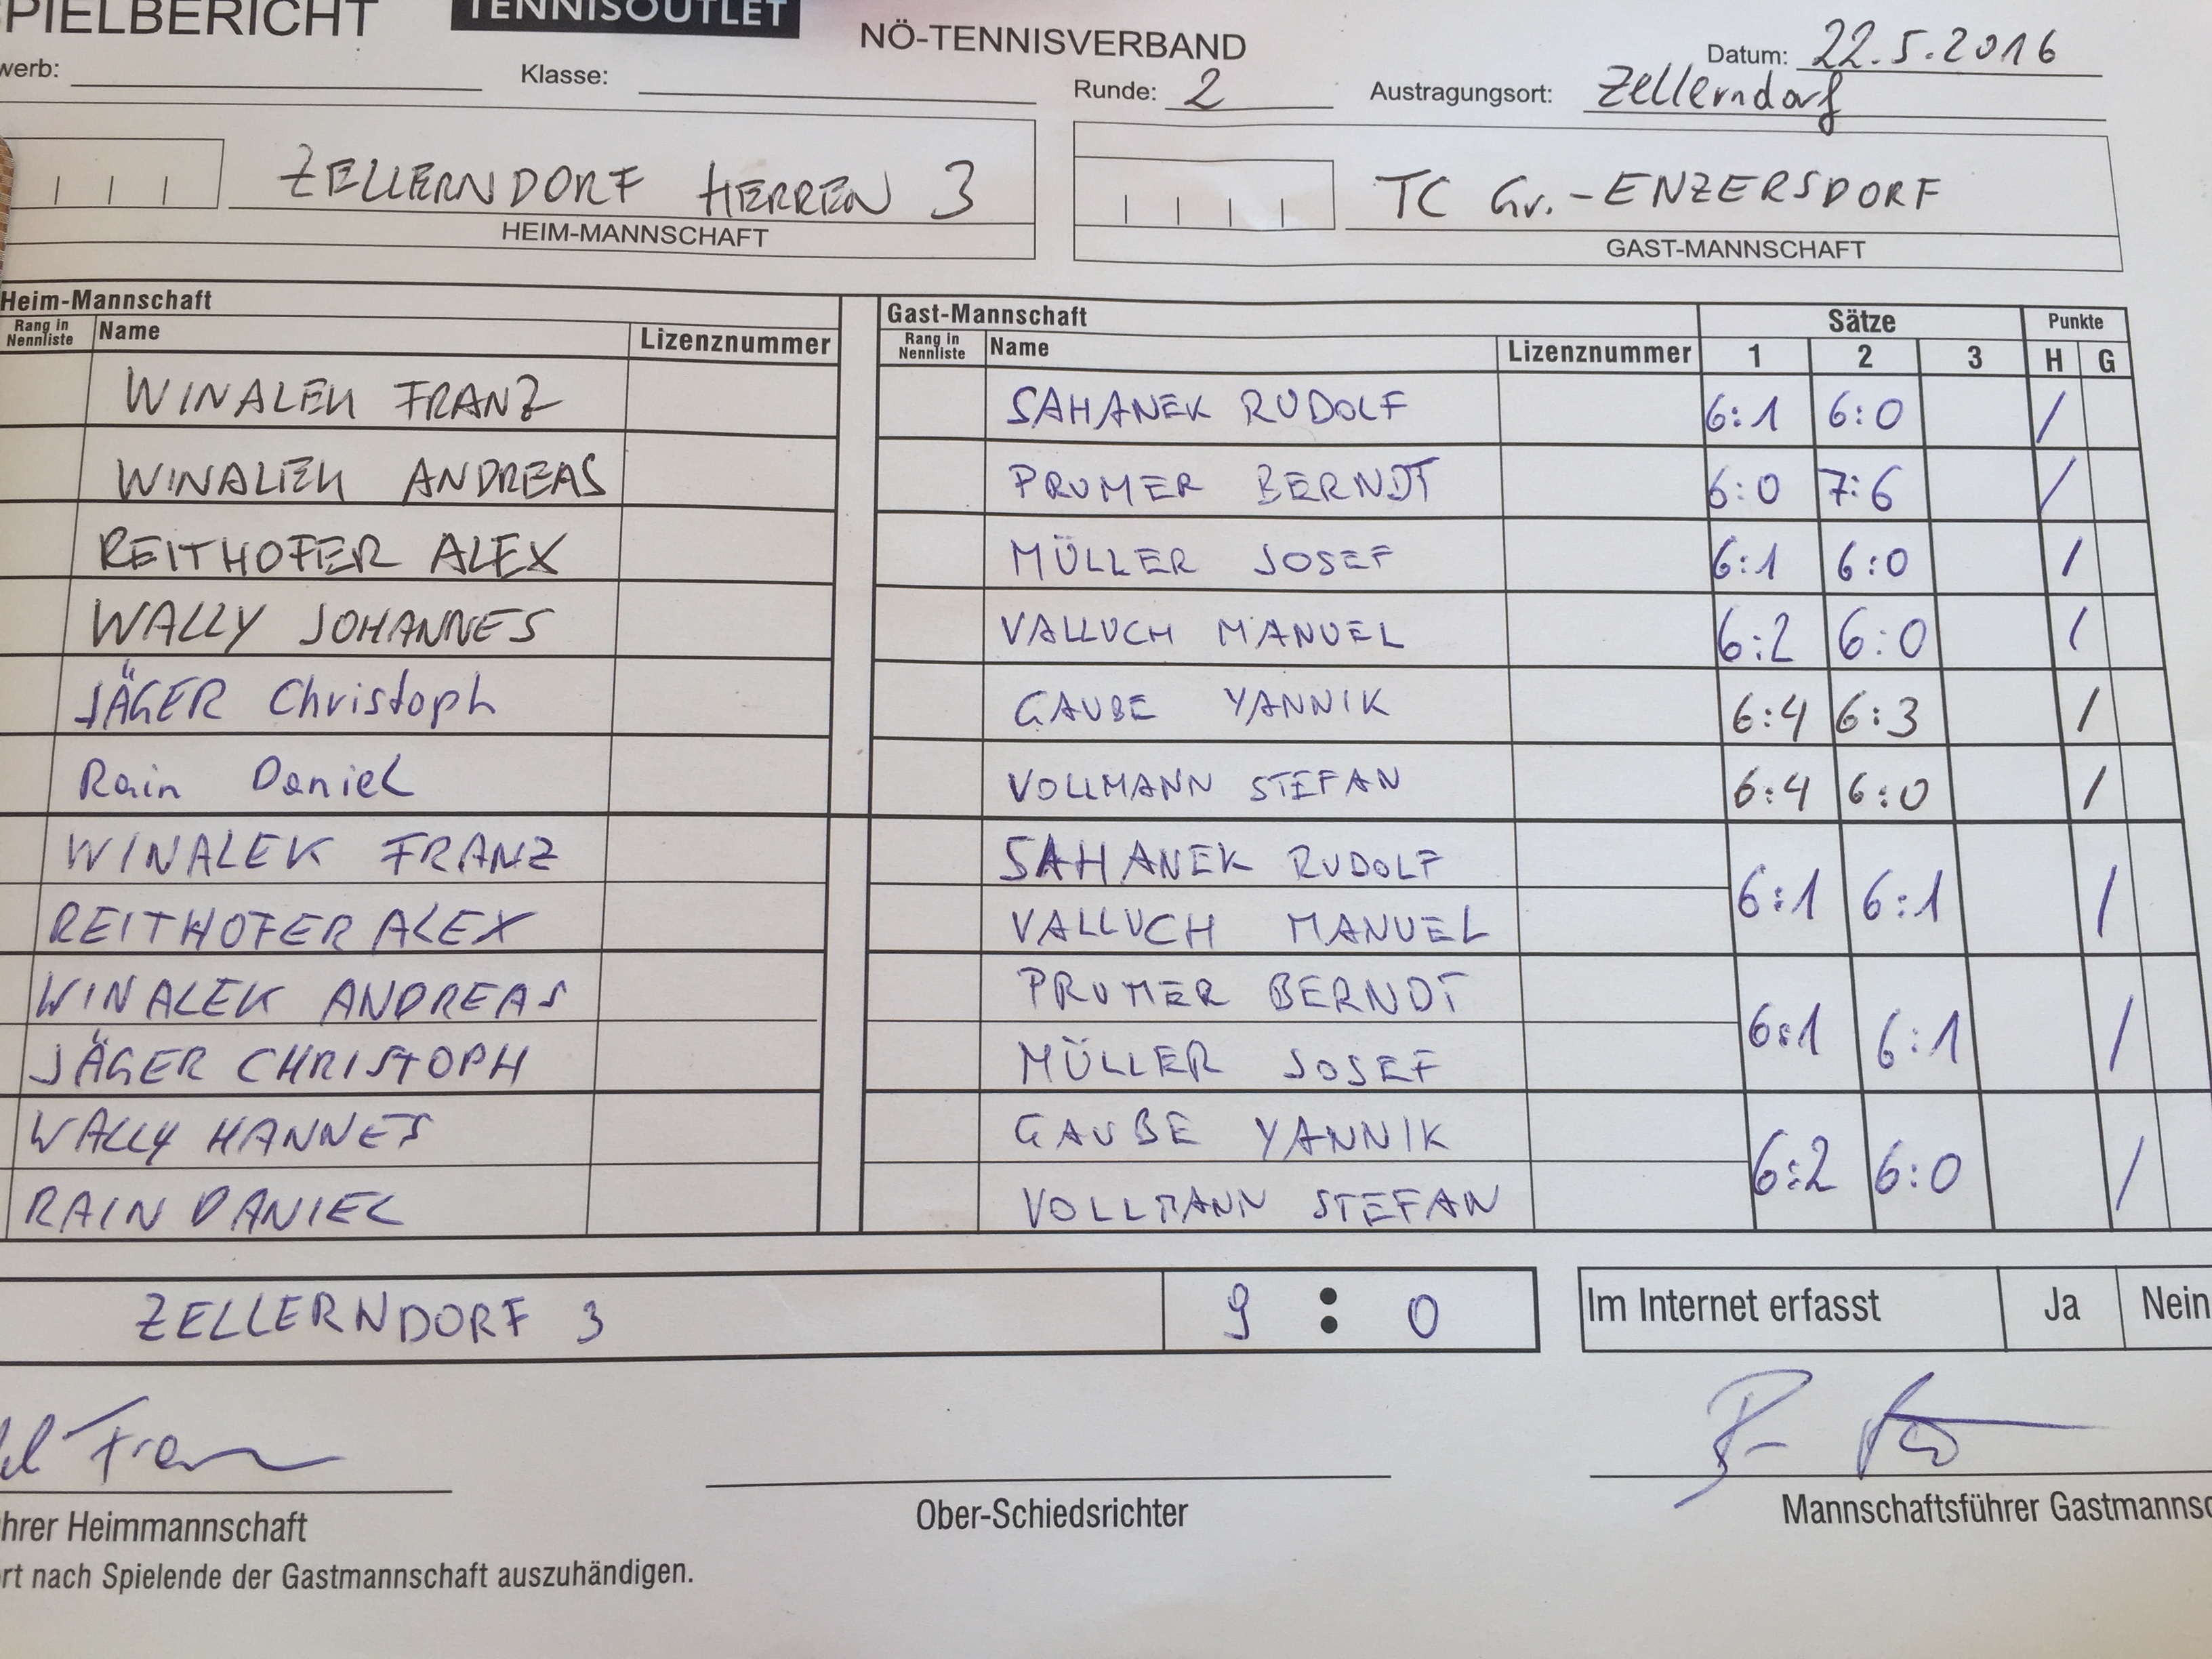 PIELBERICHT TENNISOUTLET NÖ-TENNISVERBAND Datum: 22.5.2016
werb: Klasse: Runde: 2 Austragungsort: Zellerndorf
ZELLERNDORF HERREN 3 TC Gr.-ENZERSDORF
HEIM-MANNSCHAFT GAST-MANNSCHAFT
Heim-Mannschaft Gast-Mannschaft Sätze Punkte
Rang in Nennliste Name Lizenznummer Rang in Nennliste Name Lizenznummer 1 2 3 H G
WINALEK FRANZ SAHANEK RUDOLF 6:1 6:0 /
WINALEK ANDREAS PRUMER BERNDT 6:0 7:6 /
REITHOFER ALEX MÜLLER JOSEF 6:1 6:0 /
WALLY JOHANNES VALLUCH MANUEL 6:2 6:0 /
JÄGER Christoph GAUBE YANNIK 6:4 6:3 /
Rain Daniel VOLLMANN STEFAN 6:4 6:0 /
WINALEK FRANZ SAHANEK RUDOLF 6:1 6:1 /
REITHOFER ALEX VALLUCH MANUEL
WINALEK ANDREAS PRUMER BERNDT 6:1 6:1 /
JÄGER CHRISTOPH MÜLLER JOSEF
WALLY HANNES GAUBE YANNIK 6:2 6:0 /
RAIN DANIEL VOLLMANN STEFAN
ZELLERNDORF 3 9 : 0 Im Internet erfasst Ja Nein
hrer Heimmannschaft Ober-Schiedsrichter Mannschaftsführer Gastmannsc
rt nach Spielende der Gastmannschaft auszuhändigen.